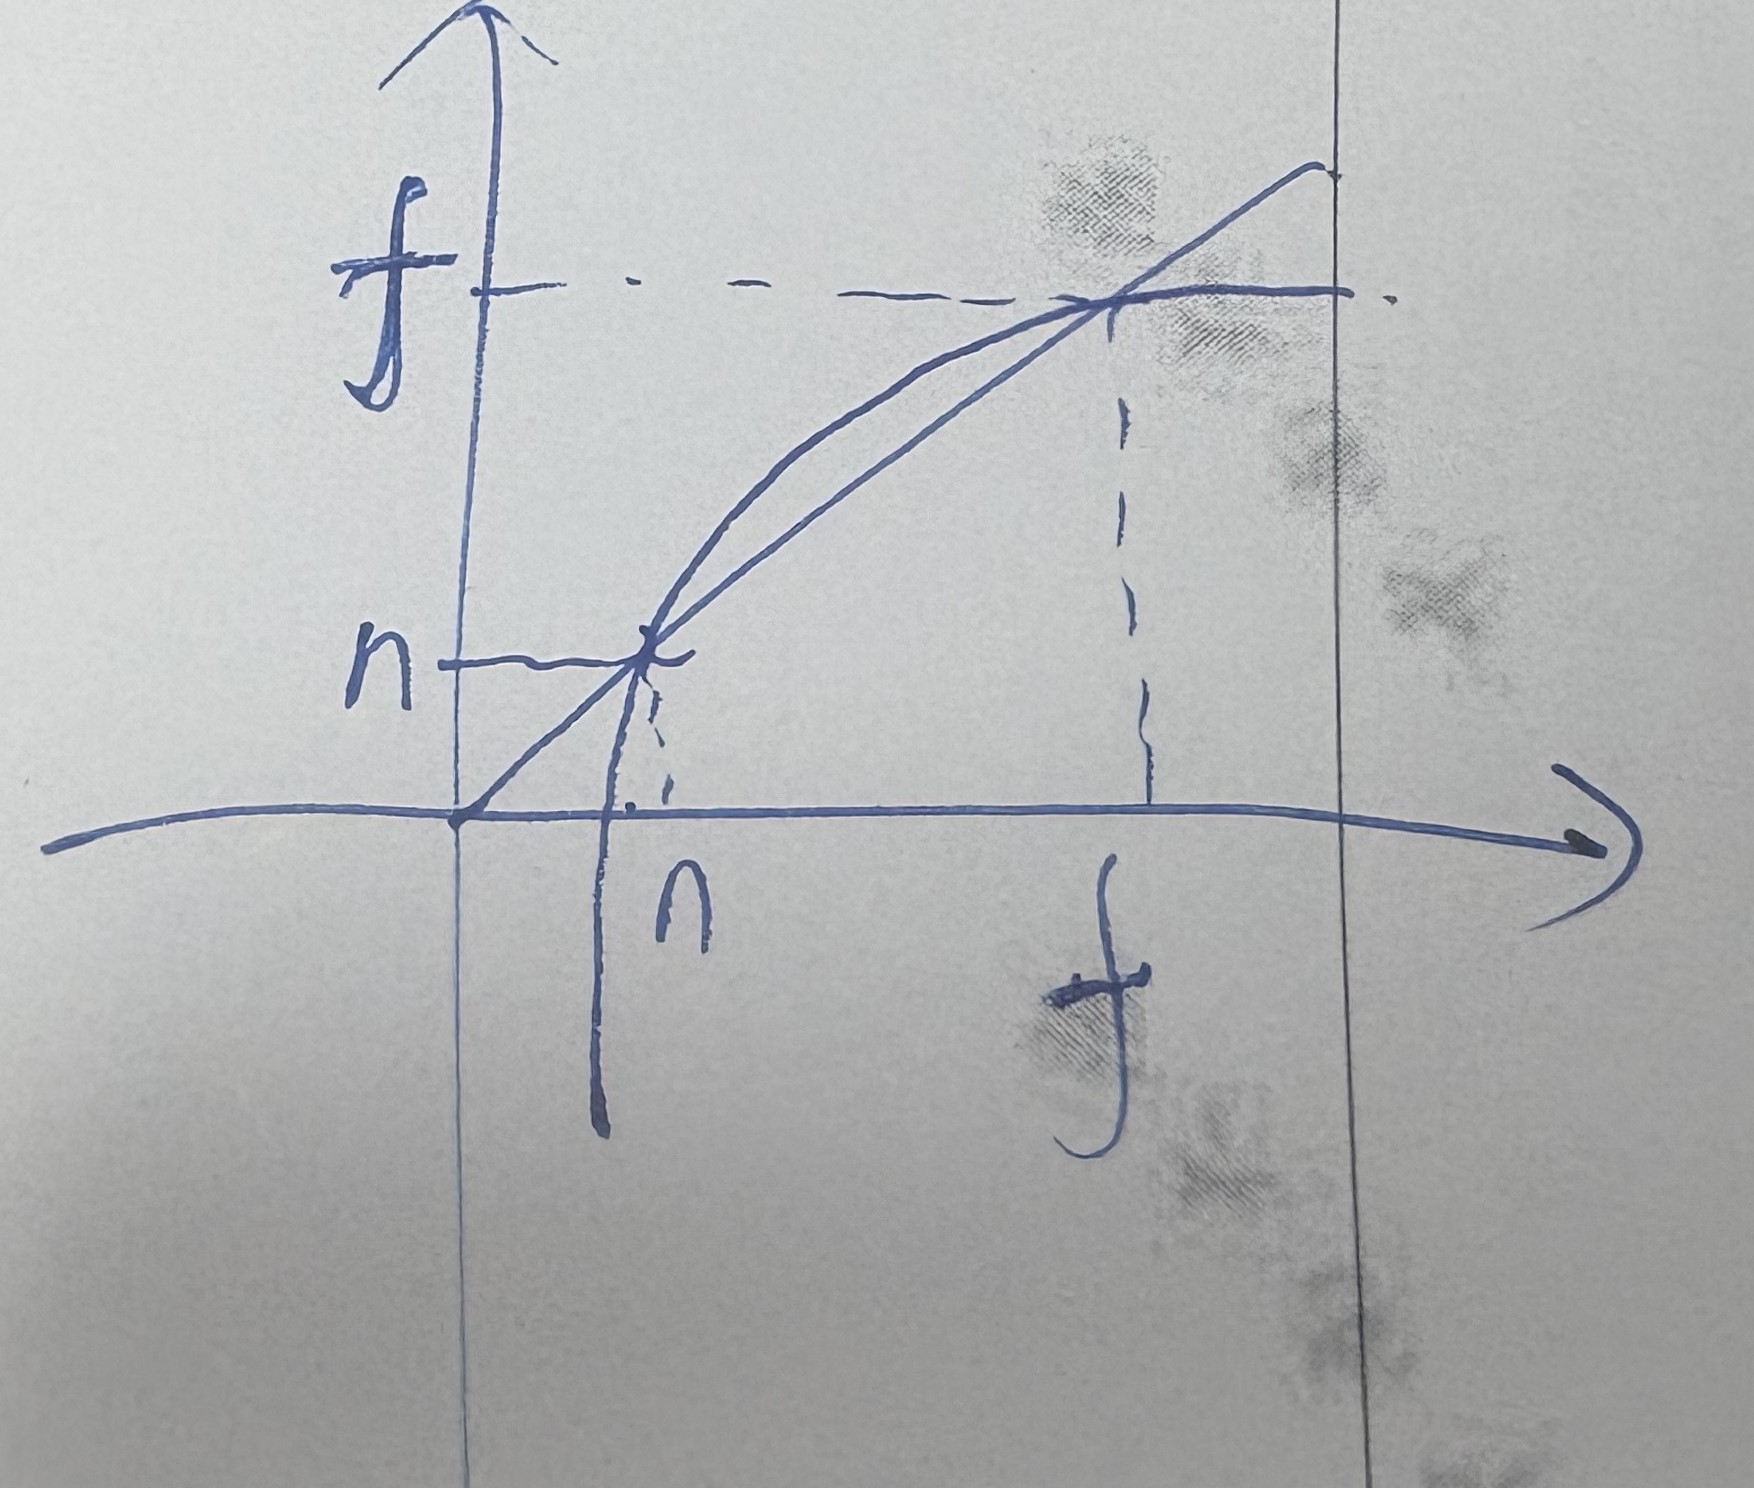 f
n
n
f